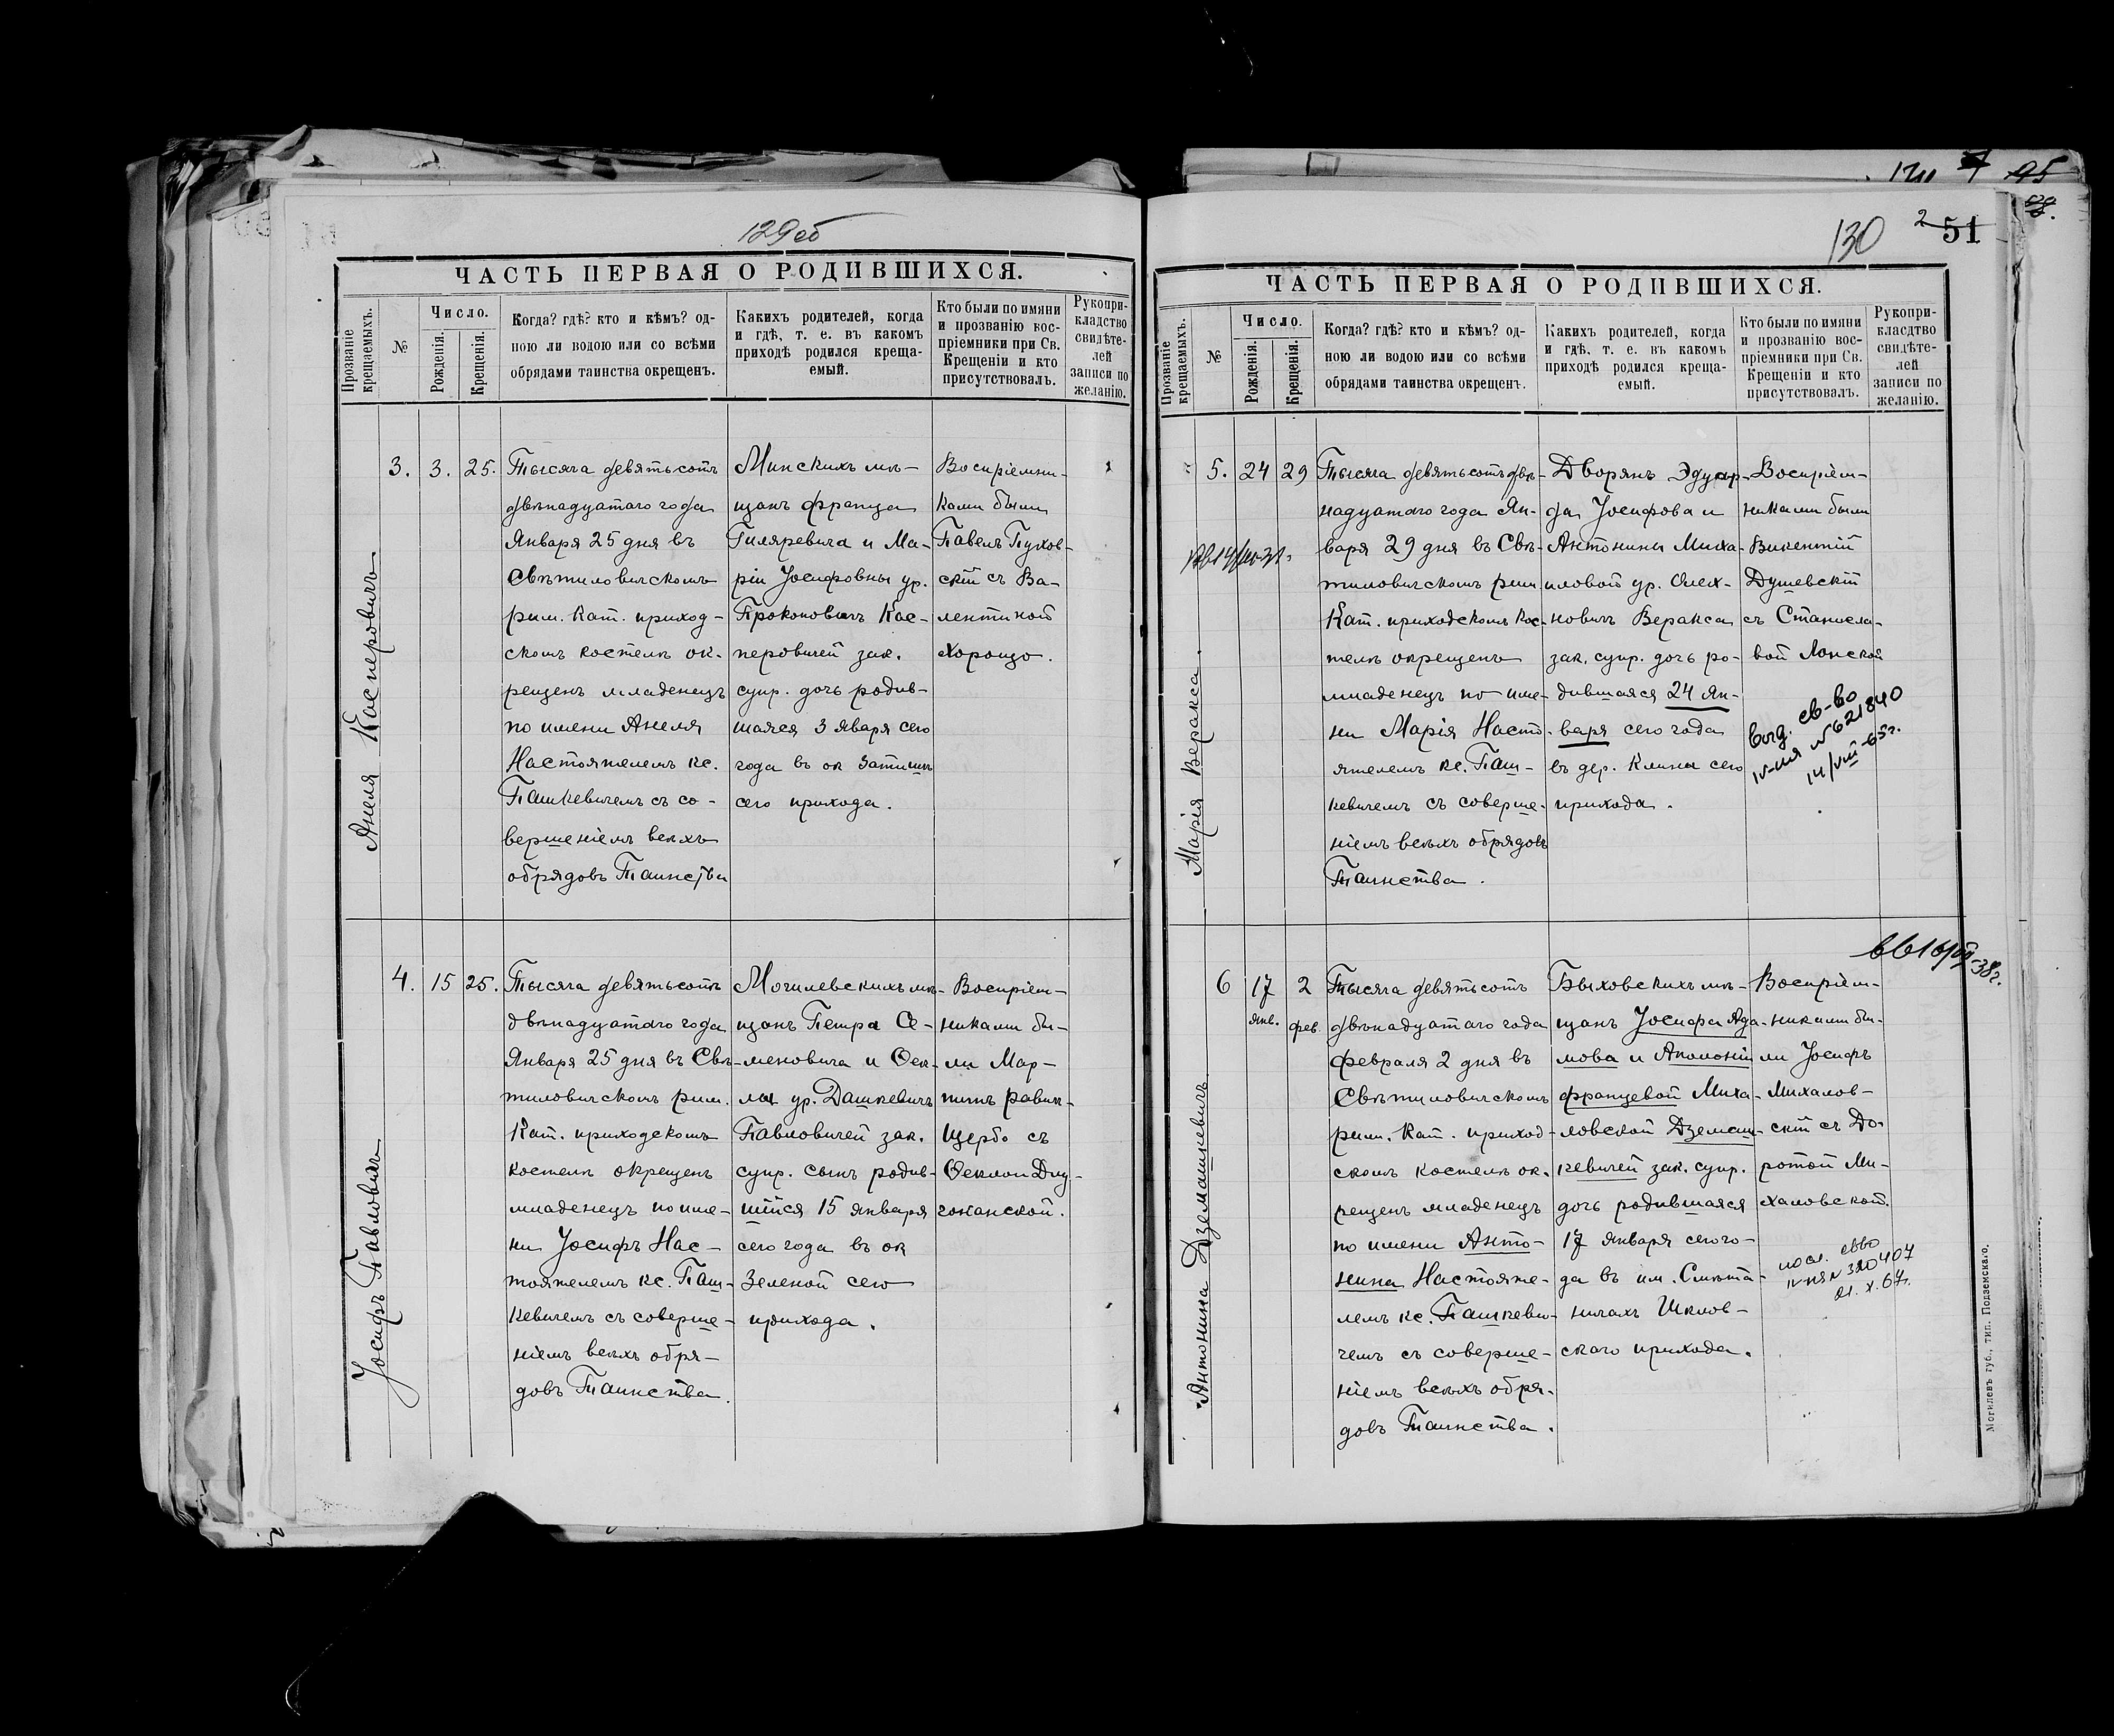 129 об
ЧАСТЬ ПЕРВАЯ О РОДИВШИХСЯ.
Прозваніе крещаемыхъ.
№
Число.
Рожденія.
Крещенія.
Когда? гдѣ? кто и кѣмъ? од-
ною ли водою или со всѣми
обрядами таинства окрещенъ.
Какихъ родителей, когда
и гдѣ, т. е. въ какомъ
приходѣ родился креща-
емый.
Кто были по имяни
и прозванію вос-
пріемники при Св.
Крещеніи и кто
присутствовалъ.
Рукопри-
кладство
свидѣте-
лей
записи по
желанію.
Анеля Касперовичъ
3.
3.
25.
Тысяча девятьсотъ
двѣнадцатаго года
Января 25 дня въ
Свѣтиловичскомъ
рим. Кат. приход-
скомъ костелѣ ок-
рещенъ младенецъ
по имени Анеля
Настоятелемъ кс.
Пашкевичемъ съ со-
вершеніемъ всѣхъ
обрядовъ Таинства
Минскихъ мѣ-
щанъ Франца
Гиляревича и Ма-
ріи Іосифовны ур.
Прокоповичъ Кас-
перовичей зак.
супр. дочь родив-
шаяся 3 января сего
года въ ок Затишъ
сего прихода.
Воспріемни-
ками были
Павелъ Пухов-
скій съ Ва-
лентиной
Хорощо.
Іосифъ Павловичъ
4.
15
25.
Тысяча девятьсотъ
двѣнадцатаго года
Января 25 дня въ Свѣ-
тиловичскомъ рим.
Кат. приходскомъ
костелѣ окрещенъ
младенецъ по име-
ни Іосифъ Нас-
тоятелемъ кс. Паш-
кевичемъ съ соверше-
ніемъ всѣхъ обря-
довъ Таинства.
Могилевскихъ мѣ-
щанъ Петра Се-
меновича и Ѳек-
лы ур. Дашкевичъ
Павловичей зак.
супр. сынъ родив-
шійся 15 января
сего года въ ок
Зеленой сего
прихода.
Воспріем-
никами бы-
ли Мар-
тинъ равин-
Щербо съ
Ѳеклой Длу-
гоканской.
130
2
51
ЧАСТЬ ПЕРВАЯ О РОДИВШИХСЯ.
Прозваніе крещаемыхъ.
№
Число.
Рожденія.
Крещенія.
Когда? гдѣ? кто и кѣмъ? од-
ною ли водою или со всѣми
обрядами таинства окрещенъ.
Какихъ родителей, когда
и гдѣ, т. е. въ какомъ
приходѣ родился креща-
емый.
Кто были по имяни
и прозванію вос-
пріемники при Св.
Крещеніи и кто
присутствовалъ.
Рукопри-
класдтво
свидѣте-
лей
записи по
желанію.
Марія Веракса.
5.
24
29
Тысяча девятьсотъ двѣ-
надцатаго года Ян-
варя 29 дня въ Свѣ-
тиловичскомъ рим
Кат. приходскомъ кос-
телѣ окрещенъ
младенецъ по име-
ни Марія Насто-
ятелемъ кс. Паш-
кевичемъ съ соверше-
ніемъ всѣхъ обрядовъ
Таинства.
Дворянъ Эдуар-
да Іосифова и
Антонины Миха-
иловой ур. Олех-
новичъ Веракса
зак. супр. дочь ро-
дившаяся 24 Ян-
варя сего года
въ дер. Клины сего
прихода.
Воспріем-
никами были
Викентій
Душевскій
съ Станисла-
вой Лонской
выд. св-во
IV-ИЯ №621840
14/VIII-65г.
Антонина Дземашкевичъ
6
17
янв.
2
фев.
Тысяча девятьсотъ
двѣнадцатаго года
февраля 2 дня въ
Свѣтиловичскомъ
рим. Кат. приход-
скомъ костелѣ ок-
рещенъ младенецъ
по имени Анто-
нина Настояте-
лемъ кс. Пашкеви-
чемъ съ соверше-
ніемъ всѣхъ обря-
довъ Таинства.
Быховскихъ мѣ-
щанъ Іосифа Ада-
мова и Аполоніи
Францевой Миха-
ловской Дземаш-
кевичей зак. супр.
дочь родившаяся
17 января сего го-
да въ им. Смѣта-
ничахъ Шклов-
скаго прихода.
Воспріем-
никами бы-
ли Іосифъ
Михалов-
скій съ До-
ротой Ми-
халовской.
посл. свво
IV ИЯ №320407
21.X.67г.
Могилевъ губ., тип. Подземскаго.